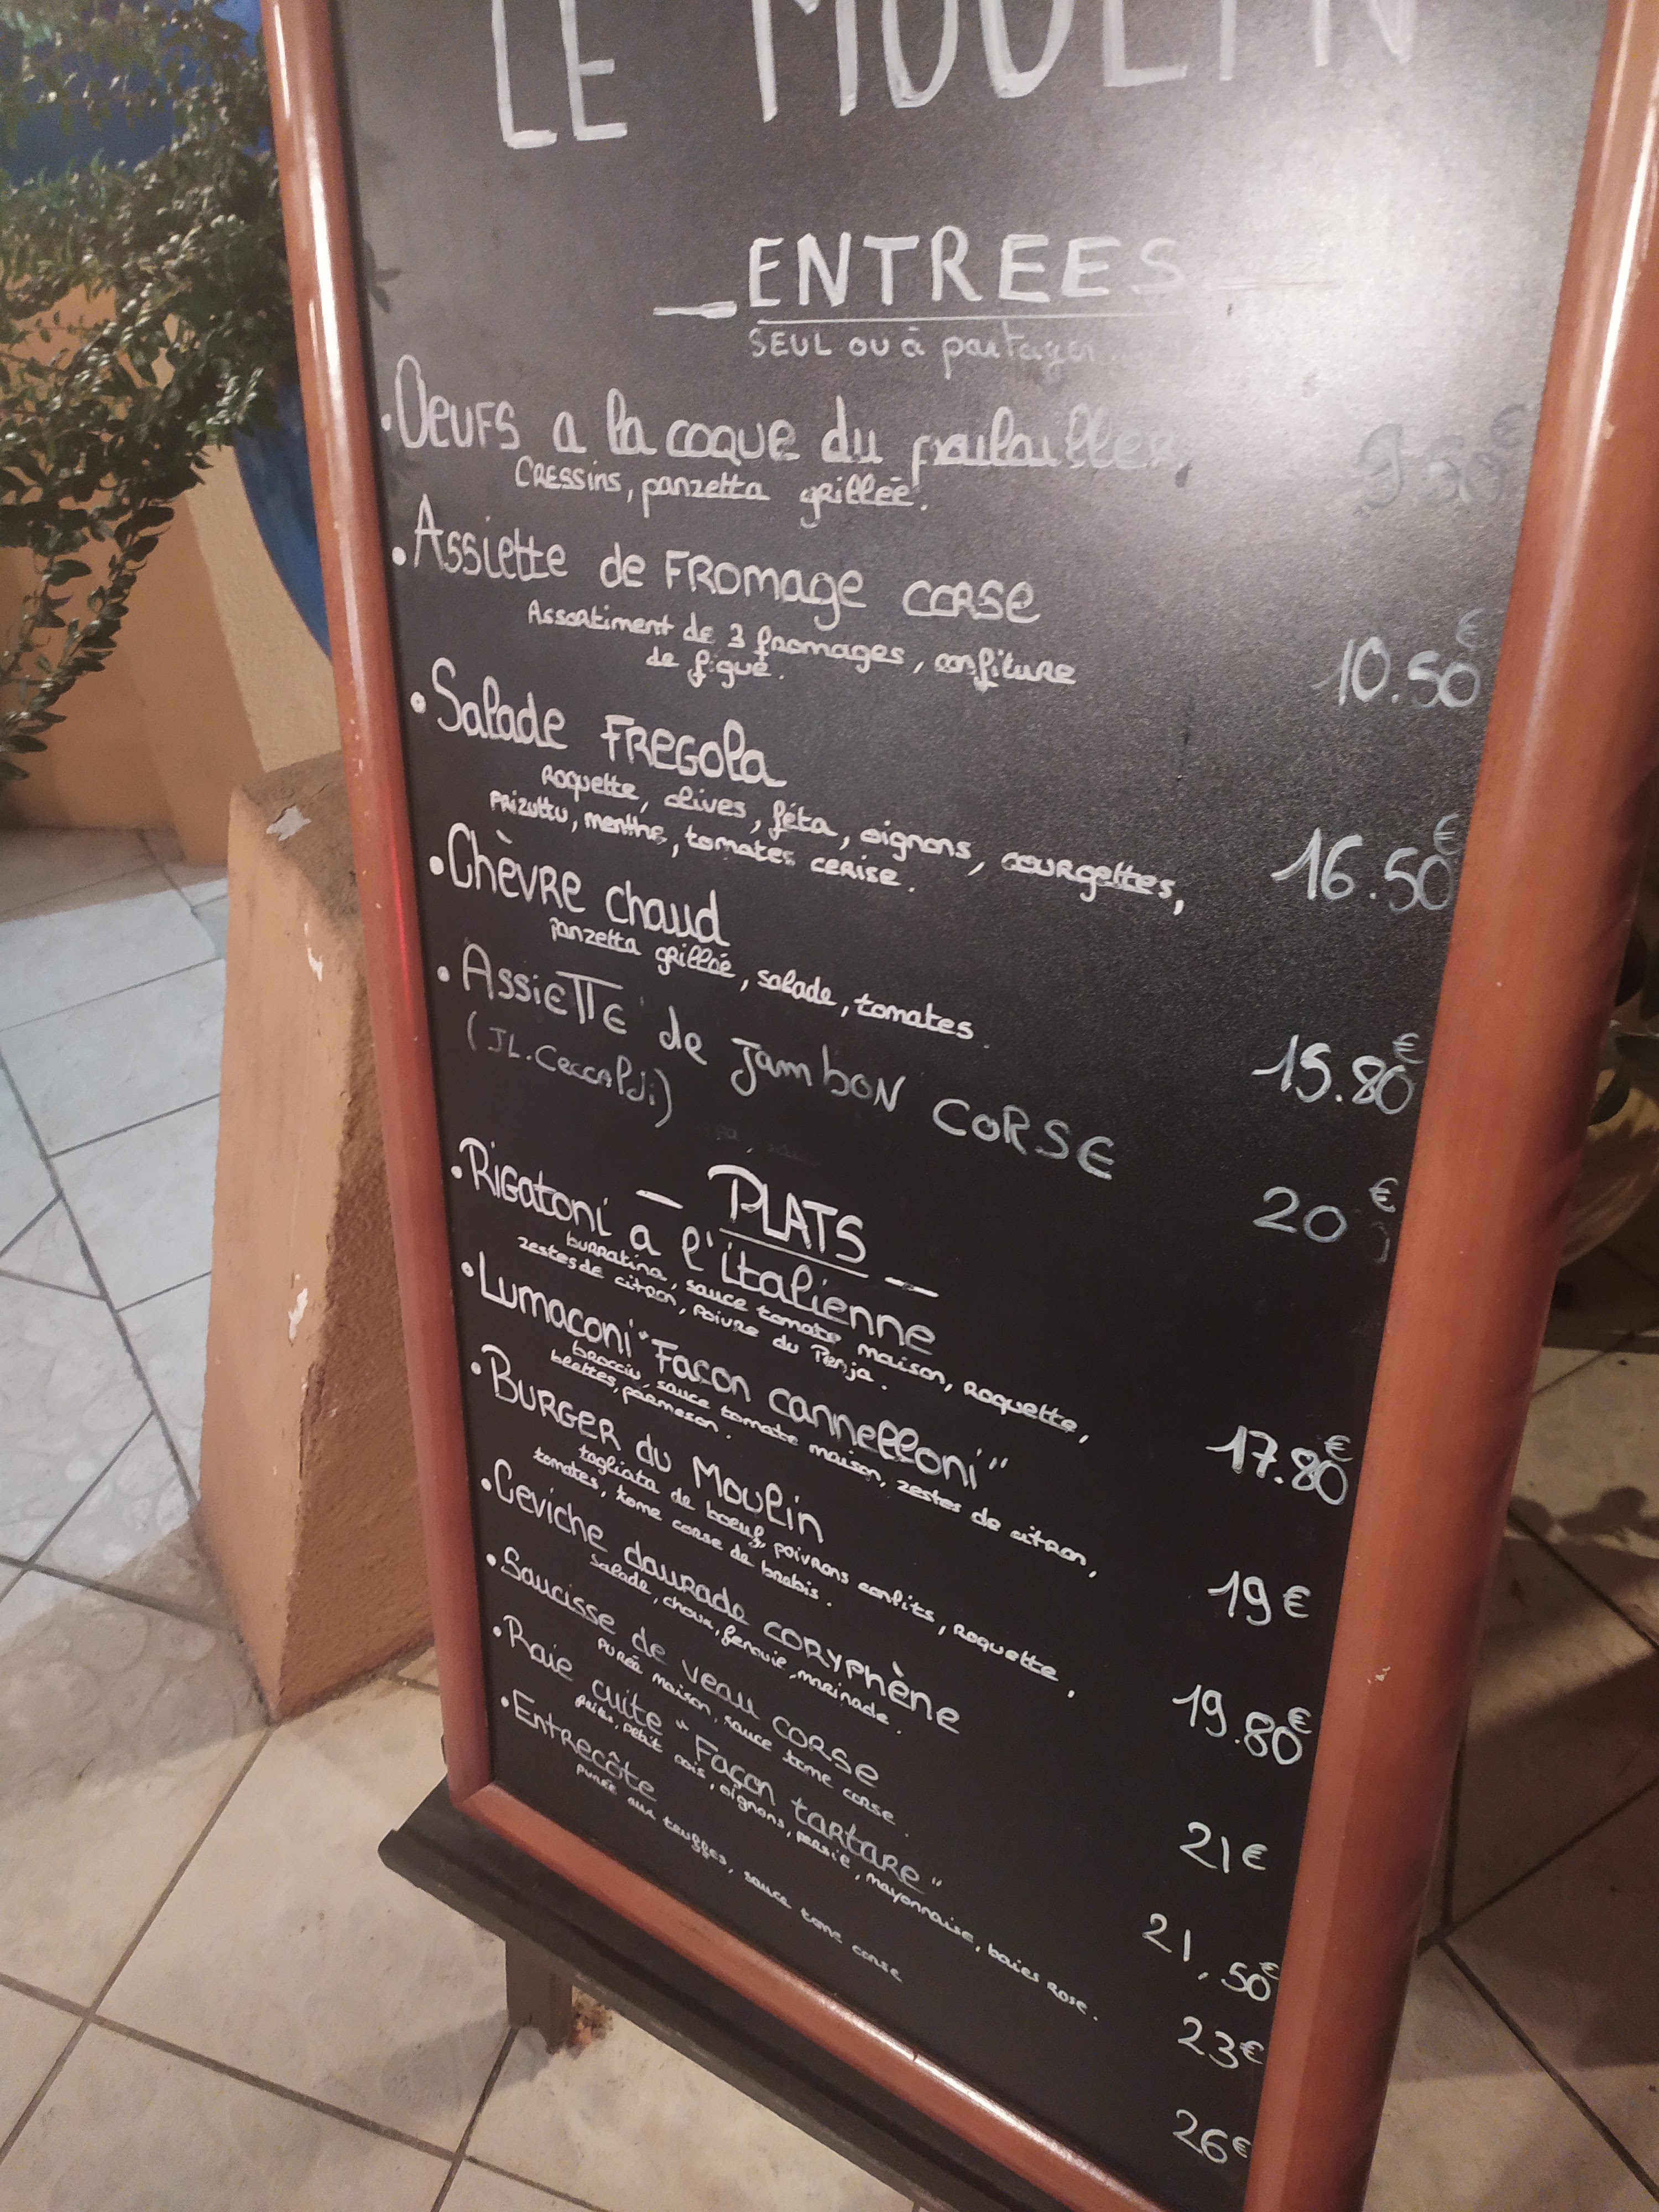 LE MOULIN
ENTREES
SEUL ou à partager
.Oeufs a la coque du poulailler, 9.50€
Cressins, panzetta grillée.
.Assiette de FROMAGE CORSE
Assortiment de 3 fromages, confiture
de figue. 10.50€
.Salade FREGOLA
Roquette, olives, féta, oignons, courgettes,
Prizuttu, menthe, tomates cerise. 16.50€
.Chèvre chaud
panzetta grillée, salade, tomates. 15.80€
.Assiette de Jambon CORSE
(JL.Ceccaldi) 20€
- PLATS -
.Rigatoni a l'italienne
burratina, sauce tomate maison, roquette,
zestes de citron, poivre du Penja. 17.80€
.Lumaconi "Facon cannelloni"
brocciu, sauce tomate maison, zestes de citron,
blettes, parmesan. 19€
.BURGER du Moulin
tagliata de boeuf, poivrons confits, roquette,
tomates, tome corse de brebis. 19.80€
.Ceviche daurade coryphène
salade, choux, fenouil, marinade. 21€
.Saucisse de veau CORSE
purée maison, sauce tome corse. 21,50€
.Raie cuite "Façon tartare"
petit pois, oignons, persil, mayonnaise, baies rose. 23€
.Entrecôte
purée aux truffes, sauce tome corse 26€